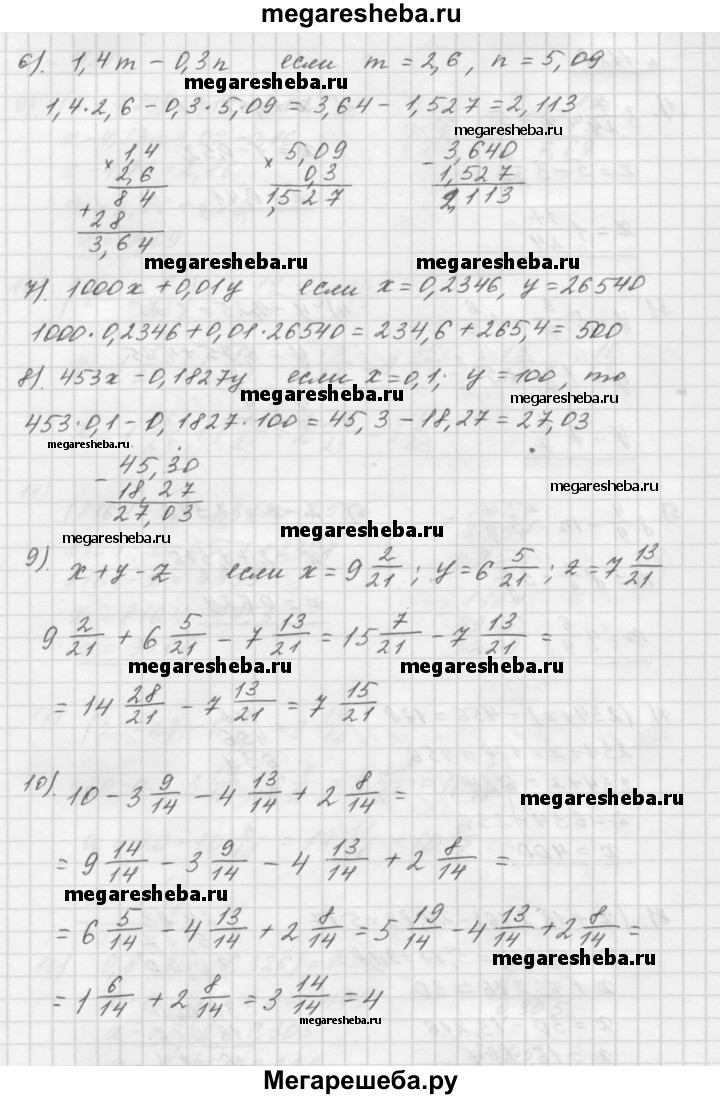 megaresheba.ru
6). 1,4m − 0,3n если m = 2,6, n = 5,09
megaresheba.ru
1,4·2,6 − 0,3·5,09 = 3,64 − 1,527 = 2,113
megaresheba.ru
× 1,4 × 5,09 − 3,640
2,6 0,3 1,527
84 1,527 2,113
+ 28
3,64
megaresheba.ru megaresheba.ru
7). 1000x + 0,01y если x = 0,2346, y = 26540
1000·0,2346 + 0,01·26540 = 234,6 + 265,4 = 500
8). 453x − 0,1827y если x = 0,1; y = 100, то
megaresheba.ru
453·0,1 − 0,1827·100 = 45,3 − 18,27 = 27,03
megaresheba.ru
− 45,30
18,27
27,03
megaresheba.ru
megaresheba.ru
megaresheba.ru
9). x + y − z если x = 9 2/21; y = 6 5/21; z = 7 13/21
9 2/21 + 6 5/21 − 7 13/21 = 15 7/21 − 7 13/21 =
megaresheba.ru megaresheba.ru
= 14 28/21 − 7 13/21 = 7 15/21
10). 10 − 3 9/14 − 4 13/14 + 2 8/14 =
megaresheba.ru
= 9 14/14 − 3 9/14 − 4 13/14 + 2 8/14 =
megaresheba.ru
= 6 5/14 − 4 13/14 + 2 8/14 = 5 19/14 − 4 13/14 + 2 8/14 =
megaresheba.ru
= 1 6/14 + 2 8/14 = 3 14/14 = 4
megaresheba.ru
Мегарешеба.ру